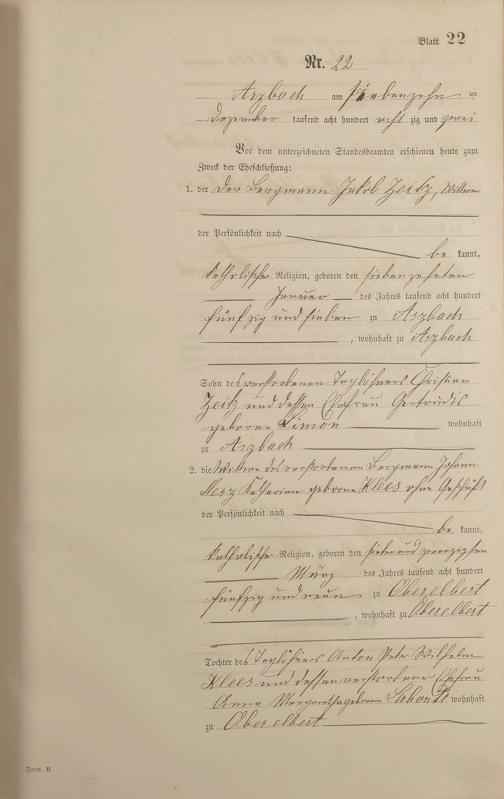 Blatt 22
Nr. 22
Arzbach am siebenzehn ten
Dezember tausend acht hundert acht zig und zwei
Vor dem unterzeichneten Standesbeamten erschienen heute zum
Zweck der Eheschließung:
1. der Der Bergmann Jakob Zeitz, Wittwer
der Persönlichkeit nach
be kannt,
katholischer Religion, geboren den siebenzehnten
Januar des Jahres tausend acht hundert
fünfzig und sieben zu Arzbach
, wohnhaft zu Arzbach
Sohn des verstorbenen Taglöhners Christian
Zeitz und dessen Ehefrau Gertrudis
geborene Simon wohnhaft
zu Arzbach
2. die Wittwe des verstorbenen Bergmann Johann
Katharina geborene Klees ohne Geschäft
der Persönlichkeit nach
be kannt,
katholischer Religion, geboren den sieben und zwanzigsten
März des Jahres tausend acht hundert
fünfzig und neun zu Oberelbert
, wohnhaft zu Oberelbert
Tochter des Taglöhners Anton Peter Wilhelm
Klees und dessen verstorbener Ehefrau
Anna Margaretha geborene wohnhaft
zu Oberelbert
Form. B.